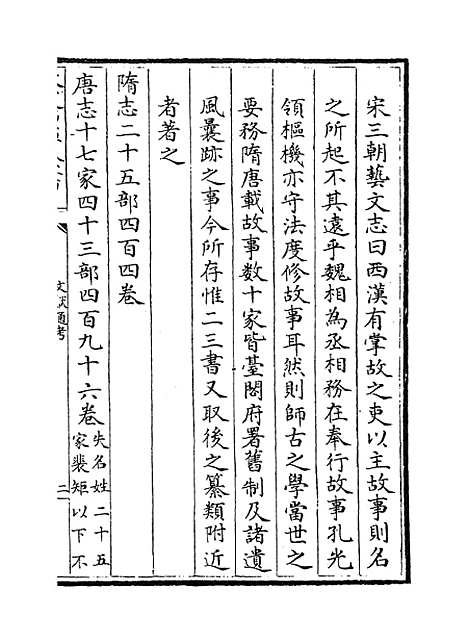 宋三朝藝文志曰西漢有掌故之吏以主故事則名
之所起不其遠乎魏相為丞相務在奉行故事孔光
領樞機亦守法度修故事耳然則師古之學當世之
要務隋唐載故事数十家皆臺閣府署舊制及諸遺
風曩跡之事今所存惟二三書又取後之纂類附近
者著之
隋志二十五部四百四卷
唐志十七家四十三部四百九十六卷失名姓二十五
家裴矩以下不
文獻通考
二